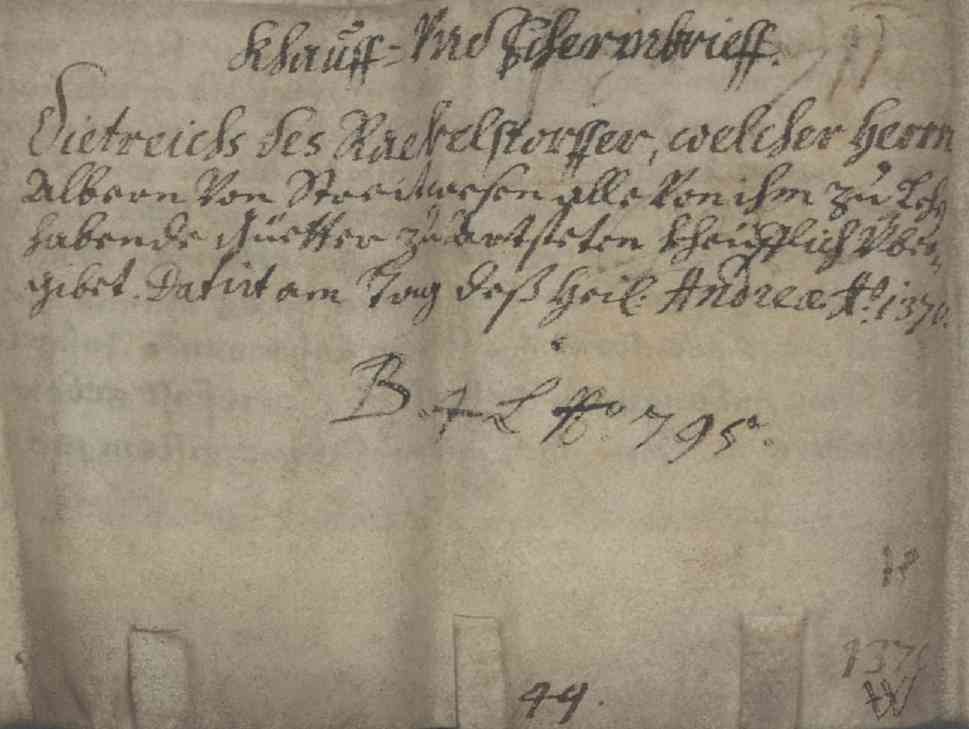 Khauff- Vnd Schermbrieff.
Dietreichs des Rackelstorffer, welcher Herrn
Albern Von Streitwesen alle Von ihm zu Leh
habende Güetter zu Artsteten kheufflich Vber,
gibet. Datirt am Tag deß Heil. Andreæ Aº. 1370.
B. L ffº. 795.
1370
44.